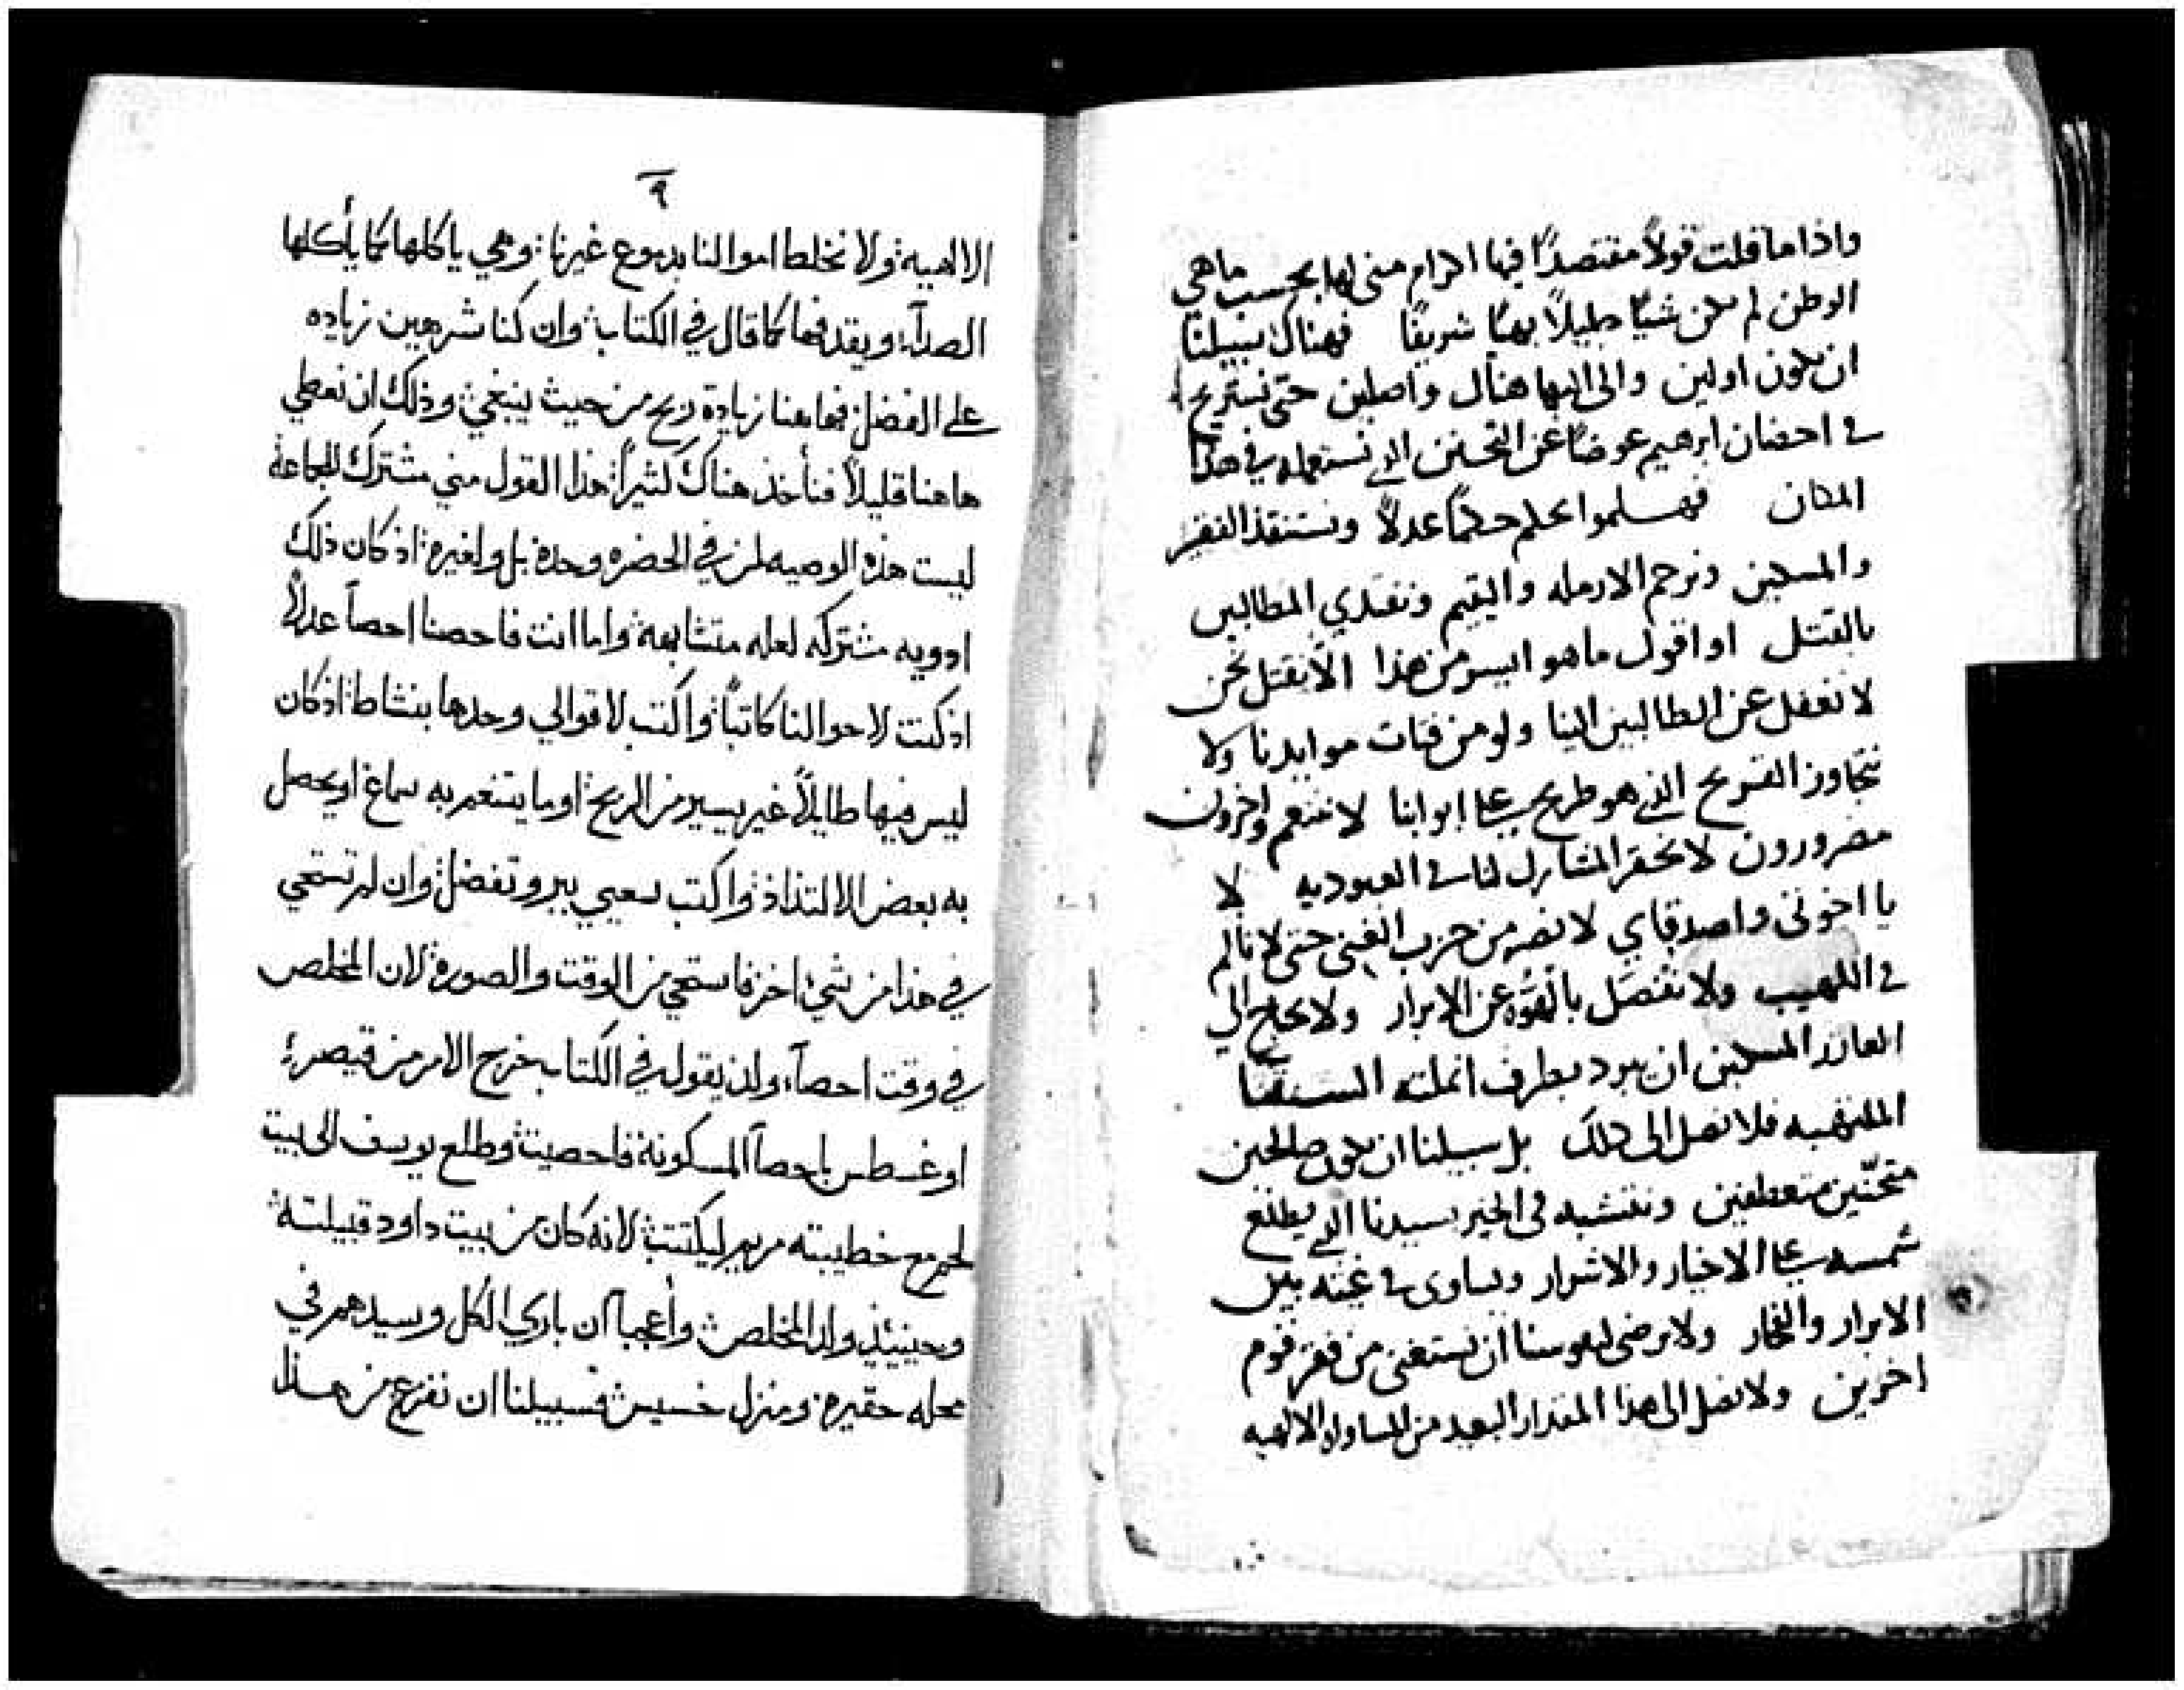 واذا ما قلت قولاً مقتصداً فيها اكرام مني لها بحسب ما هي
الوطن لم يكن شيًا جليلاً بهيًا شريفًا فهناك سبيلنا
ان نكون اولين والى البها هناك واصلين حتى نستريح
في احضان ابرهيم عوضًا عن التحنن الذي نستعمله في هذا
المكان فهلموا نحكم حكمًا عدلاً ونستنقذ الفقير
والمسكين ونرحم الارمله واليتيم ونفتدي المطالبين
بالقتل او اقول ما هو ايسر من هذا الا نقتل نحن
لا نغفل عن الطالبين الينا ولو من فتات موايدنا ولا
نتجاوز القريح الذي هو طريح على ابوابنا لا نتنعم واخرون
مضرورون لا نحقر المشارك لنا في العبوديه لا
يا اخوتي واصدقاي لا نصر من حزب الغني حتى لا نالم
في اللهيب ولا ننفصل بالهوّه عن الابرار ولا نحتاج الى
العازر المسكين ان يبرد بطرف انملته السنتنا
الملتهبه فلا نصل الى ذلك بل سبيلنا ان نكون صالحين
متحنّنين متعطفين ونتشبه في الخير بسيدنا الذي يطلع
شمسه على الاخيار والاشرار ويساوى في غيثه بين
الابرار والفجار ولا نرضى لنفوسنا ان نستغني من فقر قوم
اخرين ولا نصل الى هذا المقدار البعيد من المساواه الالهيه
٩
الالهيه ولا نخلط اموالنا بدموع غيرنا وهي ياكلها كما يأكلها
الصدآ ويقدفها كما قال في الكتاب وان كنا شرهين زياده
على الفضل فهاهنا زيادة ربح من حيث ينبغي وذلك ان نعطي
هاهنا قليلاً فنأخذ هناك كثيراً هذا القول مني مشترك للجماعة
ليست هذه الوصيه لمن في الحضره وحدة بل ولغيره اذ كان ذلك
ادويه مشتركه لعله متشابهة واما انت فاحصنا احصاً عدلاً
اذ كنت لاحوالنا كاتباً واكتب لاقوالي وحدها بنشاط اذ كان
ليس فيها طايلاً غير يسير من الربح او ما يتنعم به سماع او يحصل
به بعض الالتذاذ واكتب سعيي ببر وتفضل وان لم تستحي
في هذا من شيء اخر فاستحي من الوقت والصورة لان المخلص
في وقت احصآء ولد بقوله في الكتاب خرج الامر من قيصر
اوغسطس باحصآ المسكونة فاحصيت وطلع يوسف الى بيت
لحم مع خطيبته مريم ليكتتب لانه كان من بيت داود قبيلته
وحينيذ ولد المخلص واعجبا ان باري الكل وسيدهم في
محله حقيرة ومنزل خسيس فسبيلنا ان نفزع من هذا